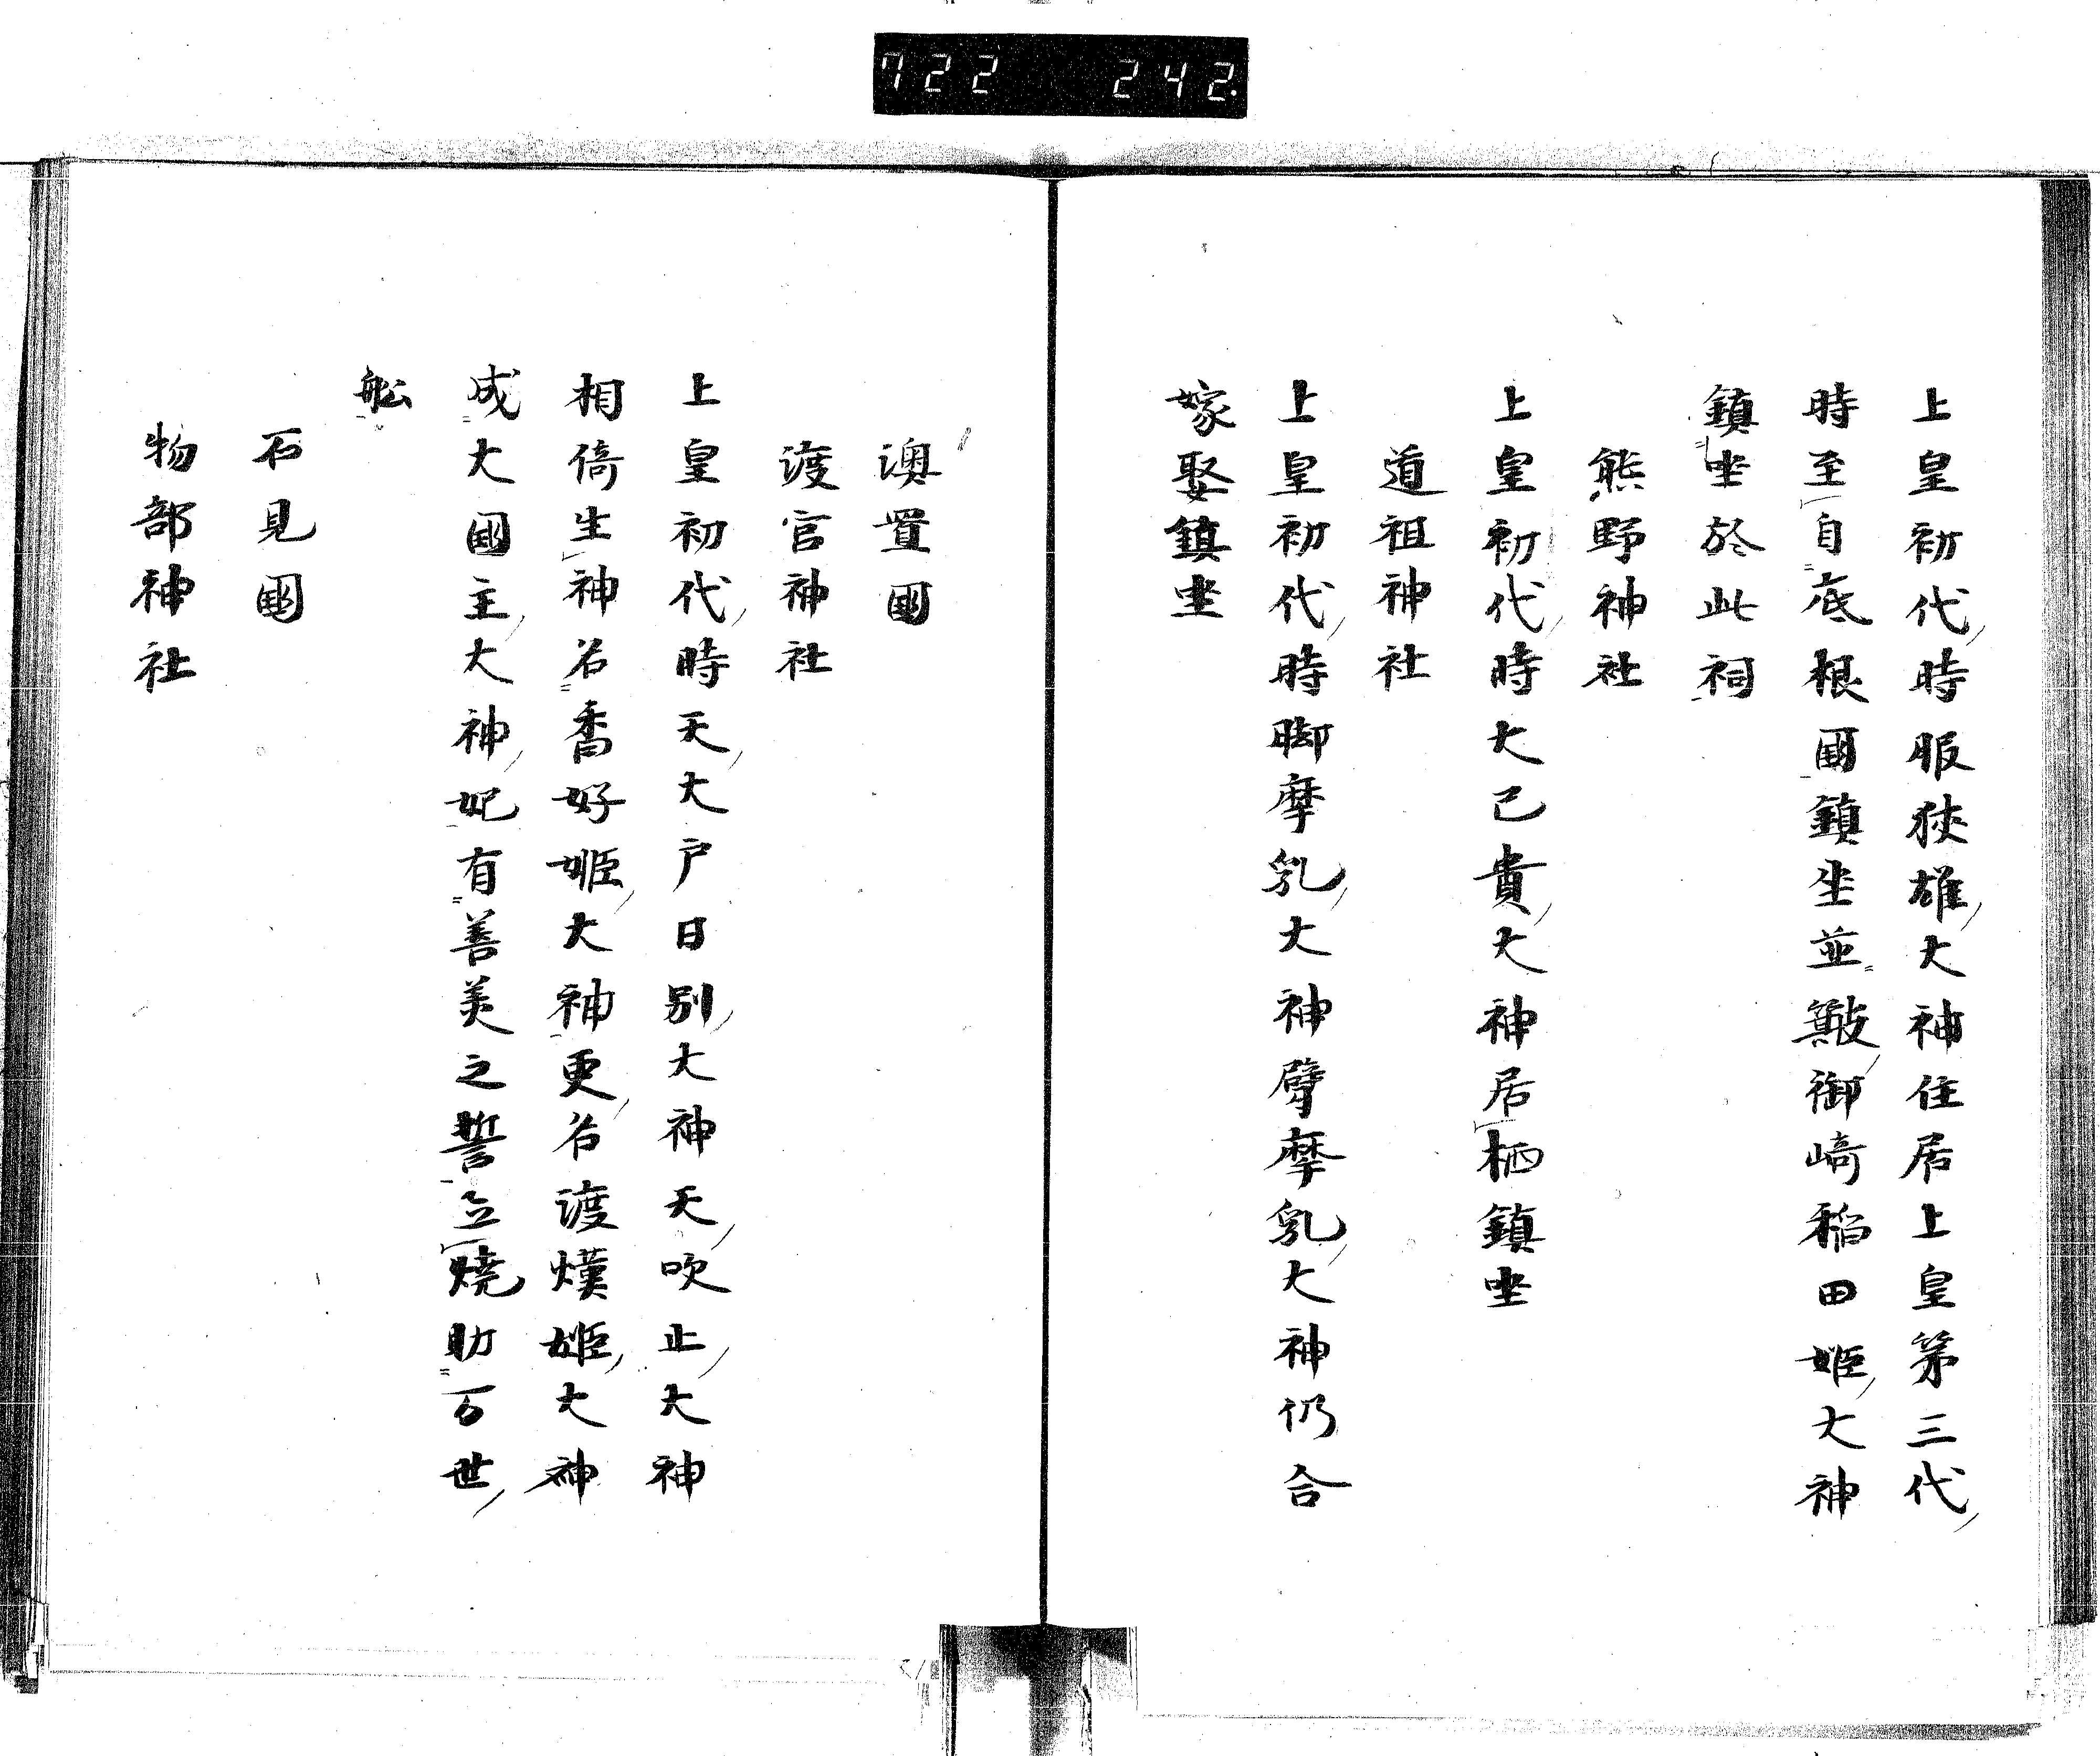 722 242
上皇初代時服狹雄大神住居上皇第三代
時至自底根國鎮坐並皺御﨑稲田姫大神
鎮坐於此祠
熊野神社
上皇初代時大己貴大神居栖鎮坐
道祖神社
上皇初代時脚摩乳大神臂摩乳大神仍合
嫁娶鎮坐
澳置國
渡官神社
上皇初代時天大戸日別大神天吹止大神
相倚生神名香好姫大神更名渡熯姫大神
成大國主大神妃有善美之誓立燒助万世
舩
石見國
物部神社